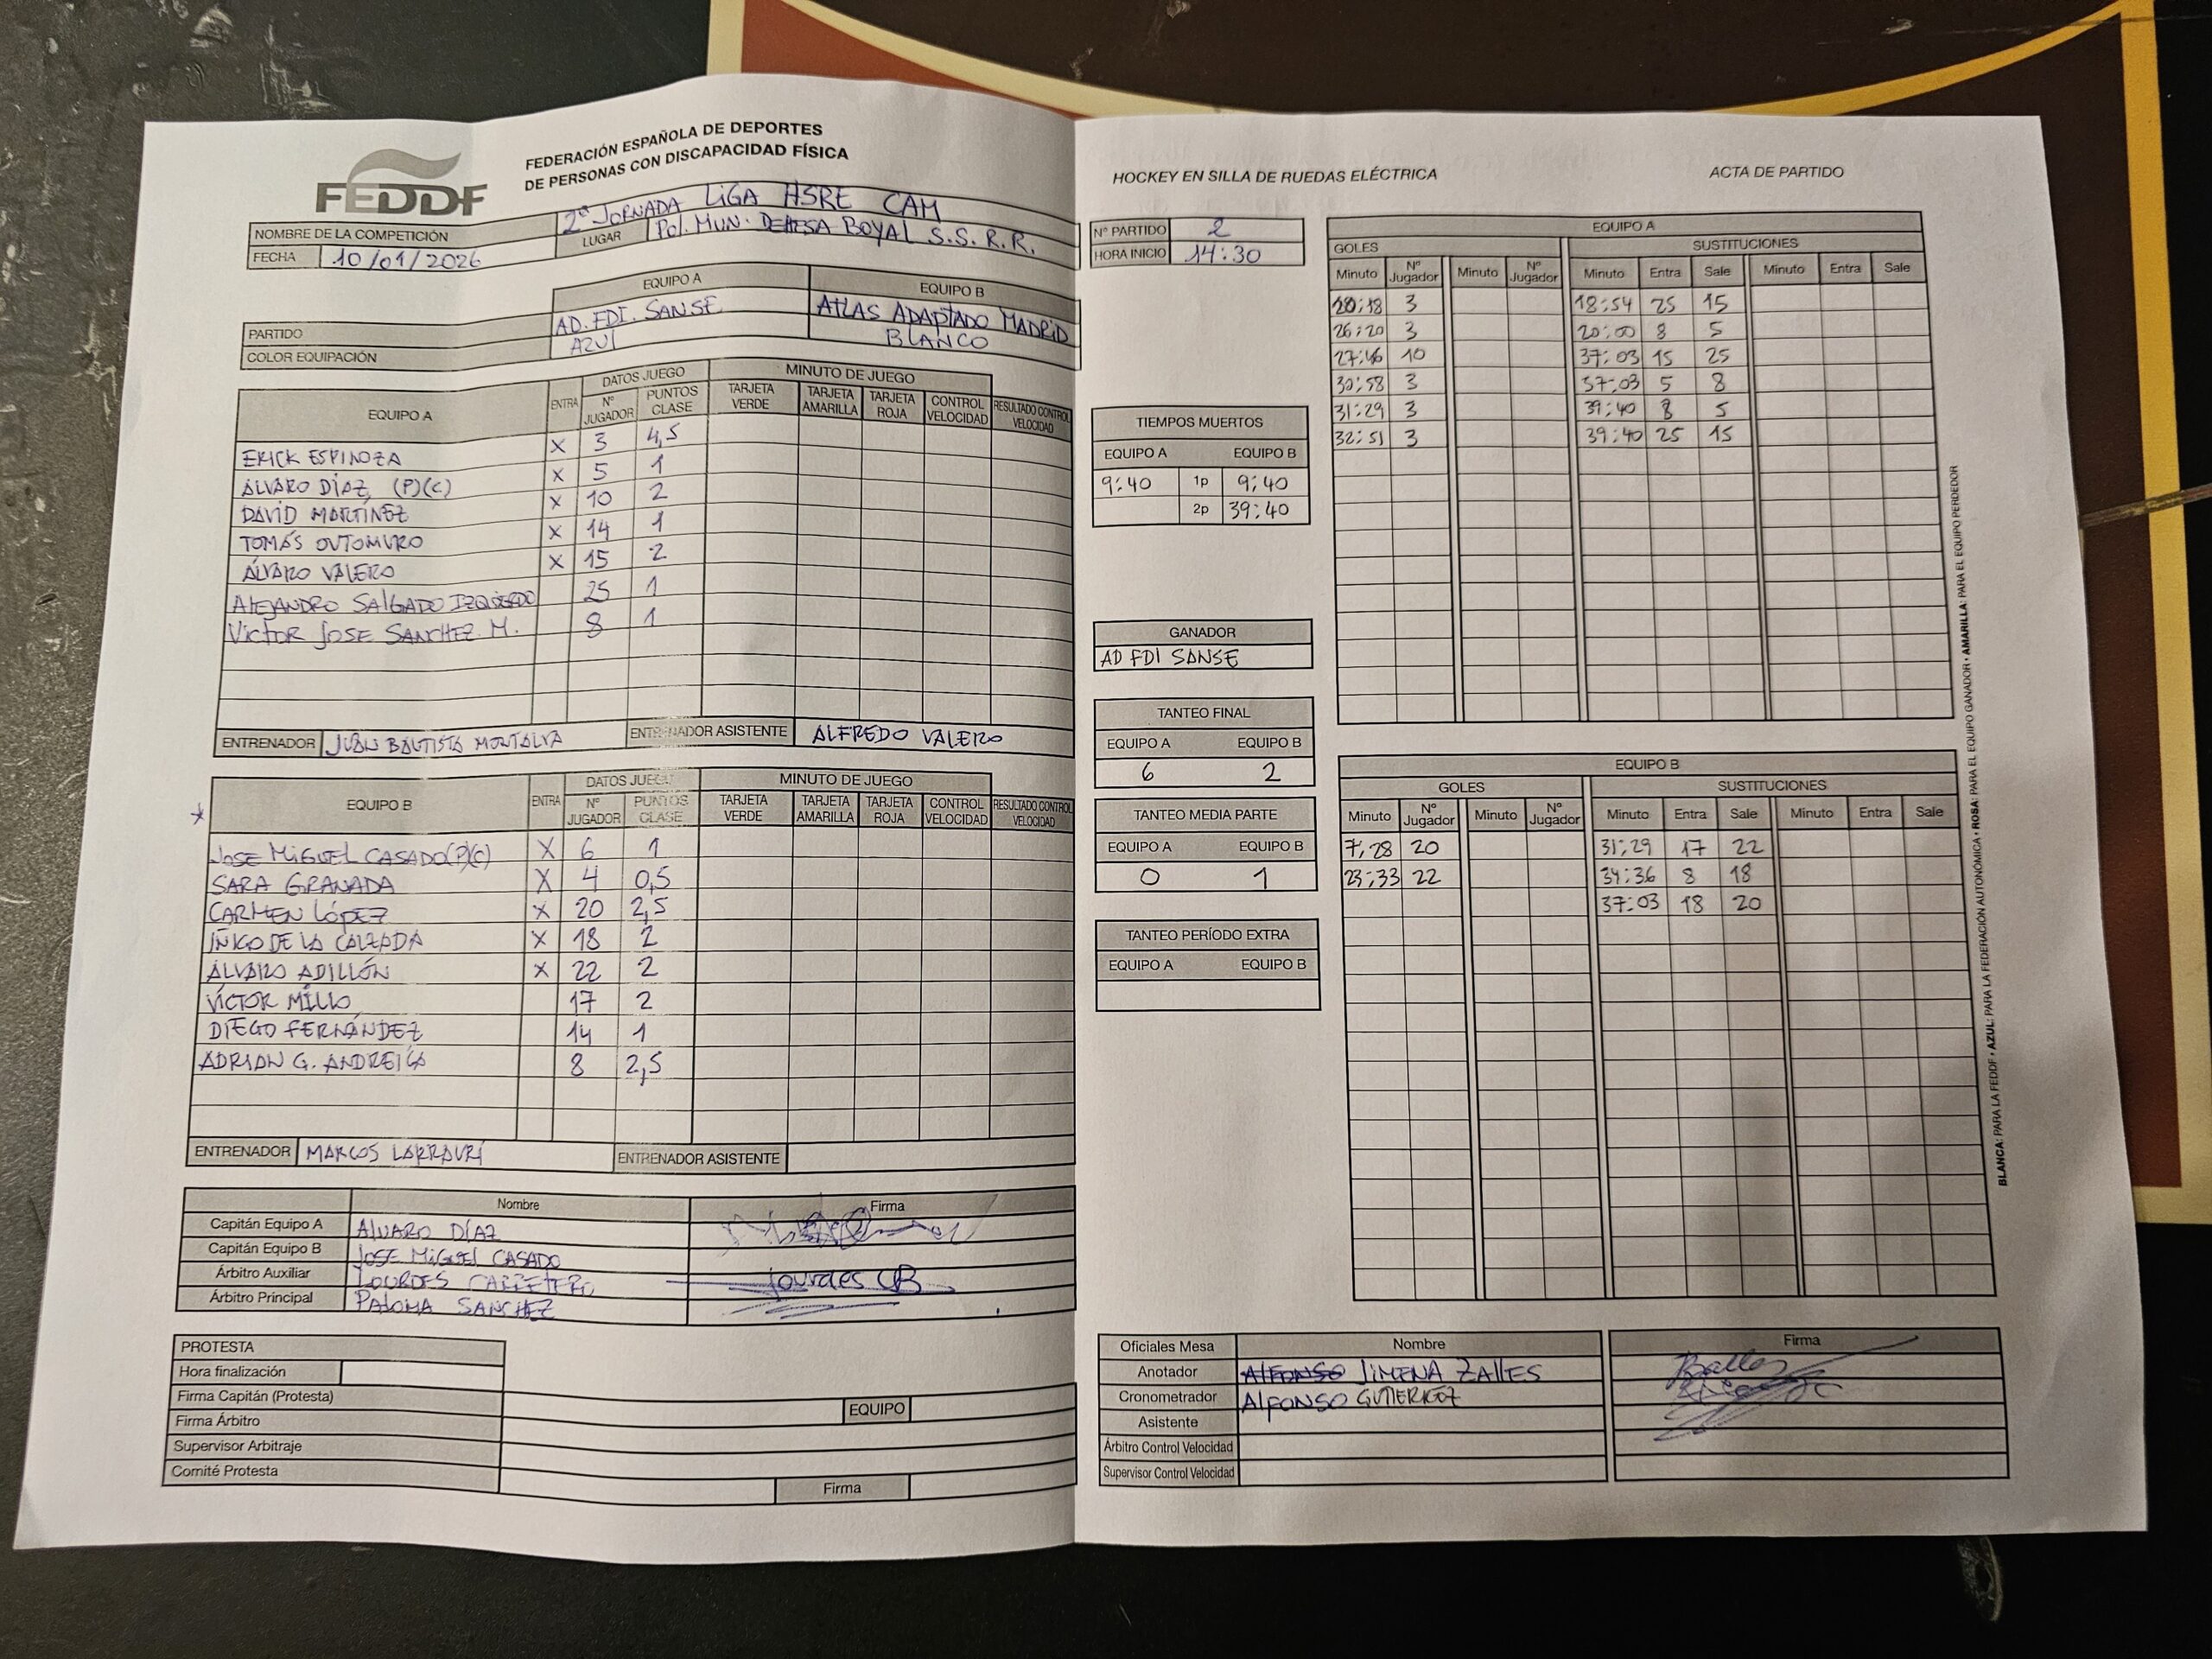 FEDDF
FEDERACIÓN ESPAÑOLA DE DEPORTES
DE PERSONAS CON DISCAPACIDAD FÍSICA
NOMBRE DE LA COMPETICIÓN 2ª JORNADA LIGA HSRE CAM
FECHA 10/01/2026 LUGAR Pol. MUN. DEHESA BOYAL S.S.R.R.
EQUIPO A EQUIPO B
PARTIDO AD. FDI. SANSE ATLAS ADAPTADO MADRID
COLOR EQUIPACIÓN AZUL BLANCO
DATOS JUEGO MINUTO DE JUEGO
EQUIPO A ENTRA Nº JUGADOR PUNTOS CLASE TARJETA VERDE TARJETA AMARILLA TARJETA ROJA CONTROL VELOCIDAD RESULTADO CONTROL VELOCIDAD
ERICK ESPINOZA X 3 4,5
ÁLVARO DÍAZ (P)(C) X 5 1
DAVID MARTÍNEZ X 10 2
TOMÁS OUTOMURO X 14 1
ÁLVARO VALERO X 15 2
ALEJANDRO SALGADO IZQUIERDO 25 1
VICTOR JOSE SANCHEZ M. 8 1
ENTRENADOR JUAN BAUTISTA MONTALVA ENTRENADOR ASISTENTE ALFREDO VALERO
DATOS JUEGO MINUTO DE JUEGO
* EQUIPO B ENTRA Nº JUGADOR PUNTOS CLASE TARJETA VERDE TARJETA AMARILLA TARJETA ROJA CONTROL VELOCIDAD RESULTADO CONTROL VELOCIDAD
JOSE MIGUEL CASADO(P)(C) X 6 1
SARA GRANADA X 4 0,5
CARMEN LÓPEZ X 20 2,5
IÑIGO DE LA CALZADA X 18 2
ÁLVARO ADILLÓN X 22 2
VÍCTOR MILLO 17 2
DIEGO FERNÁNDEZ 14 1
ADRIAN G. 8 2,5
ENTRENADOR MARCOS LARRAURI ENTRENADOR ASISTENTE
Nombre Firma
Capitán Equipo A ALVARO DÍAZ
Capitán Equipo B JOSE MIGUEL CASADO
Árbitro Auxiliar LOURDES CARRETERO Lourdes CB
Árbitro Principal PALOMA SANCHEZ
PROTESTA
Hora finalización
Firma Capitán (Protesta) EQUIPO
Firma Árbitro
Supervisor Arbitraje
Comité Protesta Firma
HOCKEY EN SILLA DE RUEDAS ELÉCTRICA ACTA DE PARTIDO
Nº PARTIDO 2
HORA INICIO 14:30
TIEMPOS MUERTOS
EQUIPO A EQUIPO B
9:40 1p 9:40
2p 39:40
GANADOR
AD FDI SANSE
TANTEO FINAL
EQUIPO A EQUIPO B
6 2
TANTEO MEDIA PARTE
EQUIPO A EQUIPO B
0 1
TANTEO PERÍODO EXTRA
EQUIPO A EQUIPO B
EQUIPO A
GOLES SUSTITUCIONES
Minuto Nº Jugador Minuto Nº Jugador Minuto Entra Sale Minuto Entra Sale
20:18 3 18:54 25 15
26:20 3 20:00 8 5
27:46 10 37:03 15 25
30:58 3 37:03 5 8
31:29 3 39:40 8 5
32:51 3 39:40 25 15
EQUIPO B
GOLES SUSTITUCIONES
Minuto Nº Jugador Minuto Nº Jugador Minuto Entra Sale Minuto Entra Sale
7:28 20 31:29 17 22
23:33 22 34:36 8 18
37:03 18 20
Oficiales Mesa Nombre Firma
Anotador ALFONSO JIMENA ZALLES
Cronometrador ALFONSO GUTIERREZ
Asistente
Árbitro Control Velocidad
Supervisor Control Velocidad
BLANCA: PARA LA FEDDF • AZUL: PARA LA FEDERACIÓN AUTONÓMICA • ROSA: PARA EL EQUIPO GANADOR • AMARILLA: PARA EL EQUIPO PERDEDOR